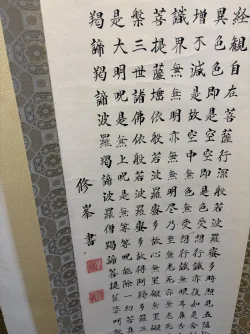 経観自在菩薩行深般若波羅蜜多時照見五蘊
異色色即是空空即是色受想行識亦復如是舎
増不減是故空中無色無受想行識無眼耳
識界無無明亦無無明尽乃至無老死亦無老
菩提薩埵依般若波羅蜜多故心無罣礙無罣
槃三世諸佛依般若波羅蜜多故得阿耨多羅三
是大明呪是無上呪是無等等呪能除一切苦
羯諦羯諦波羅羯諦波羅僧羯諦菩提
修峯書